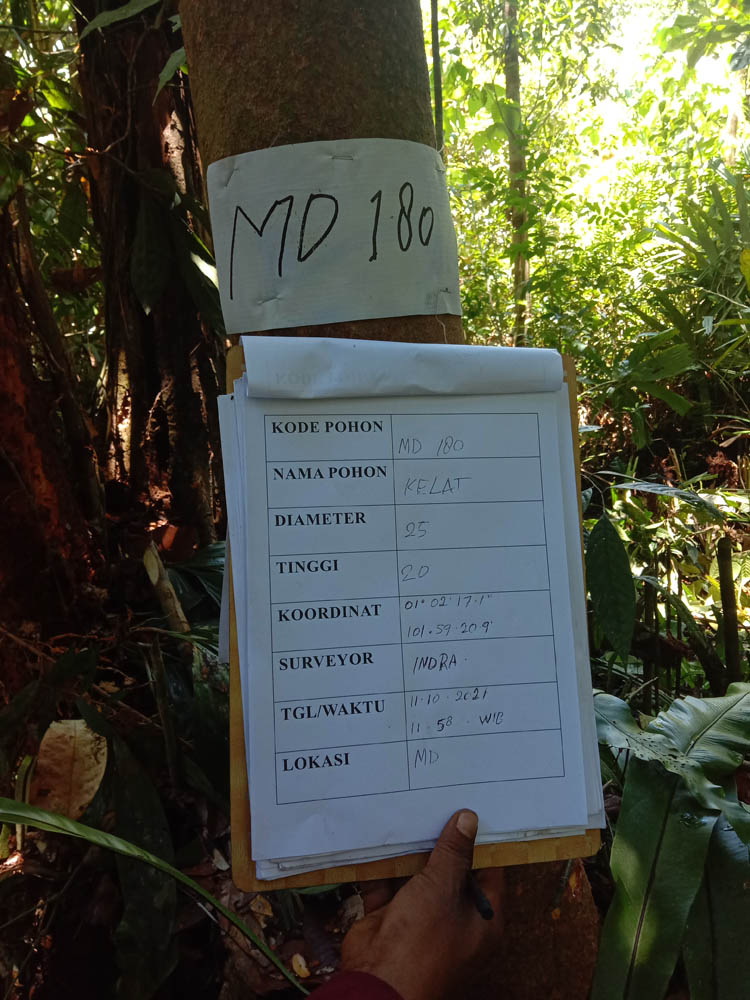 MD 180
KODE POHON MD 180
NAMA POHON KELAT
DIAMETER 25
TINGGI 20
KOORDINAT 01° 02' 17.1"
101.59.20.9"
SURVEYOR INDRA.
TGL/WAKTU 11.10.2021
11.58. WIB
LOKASI MD